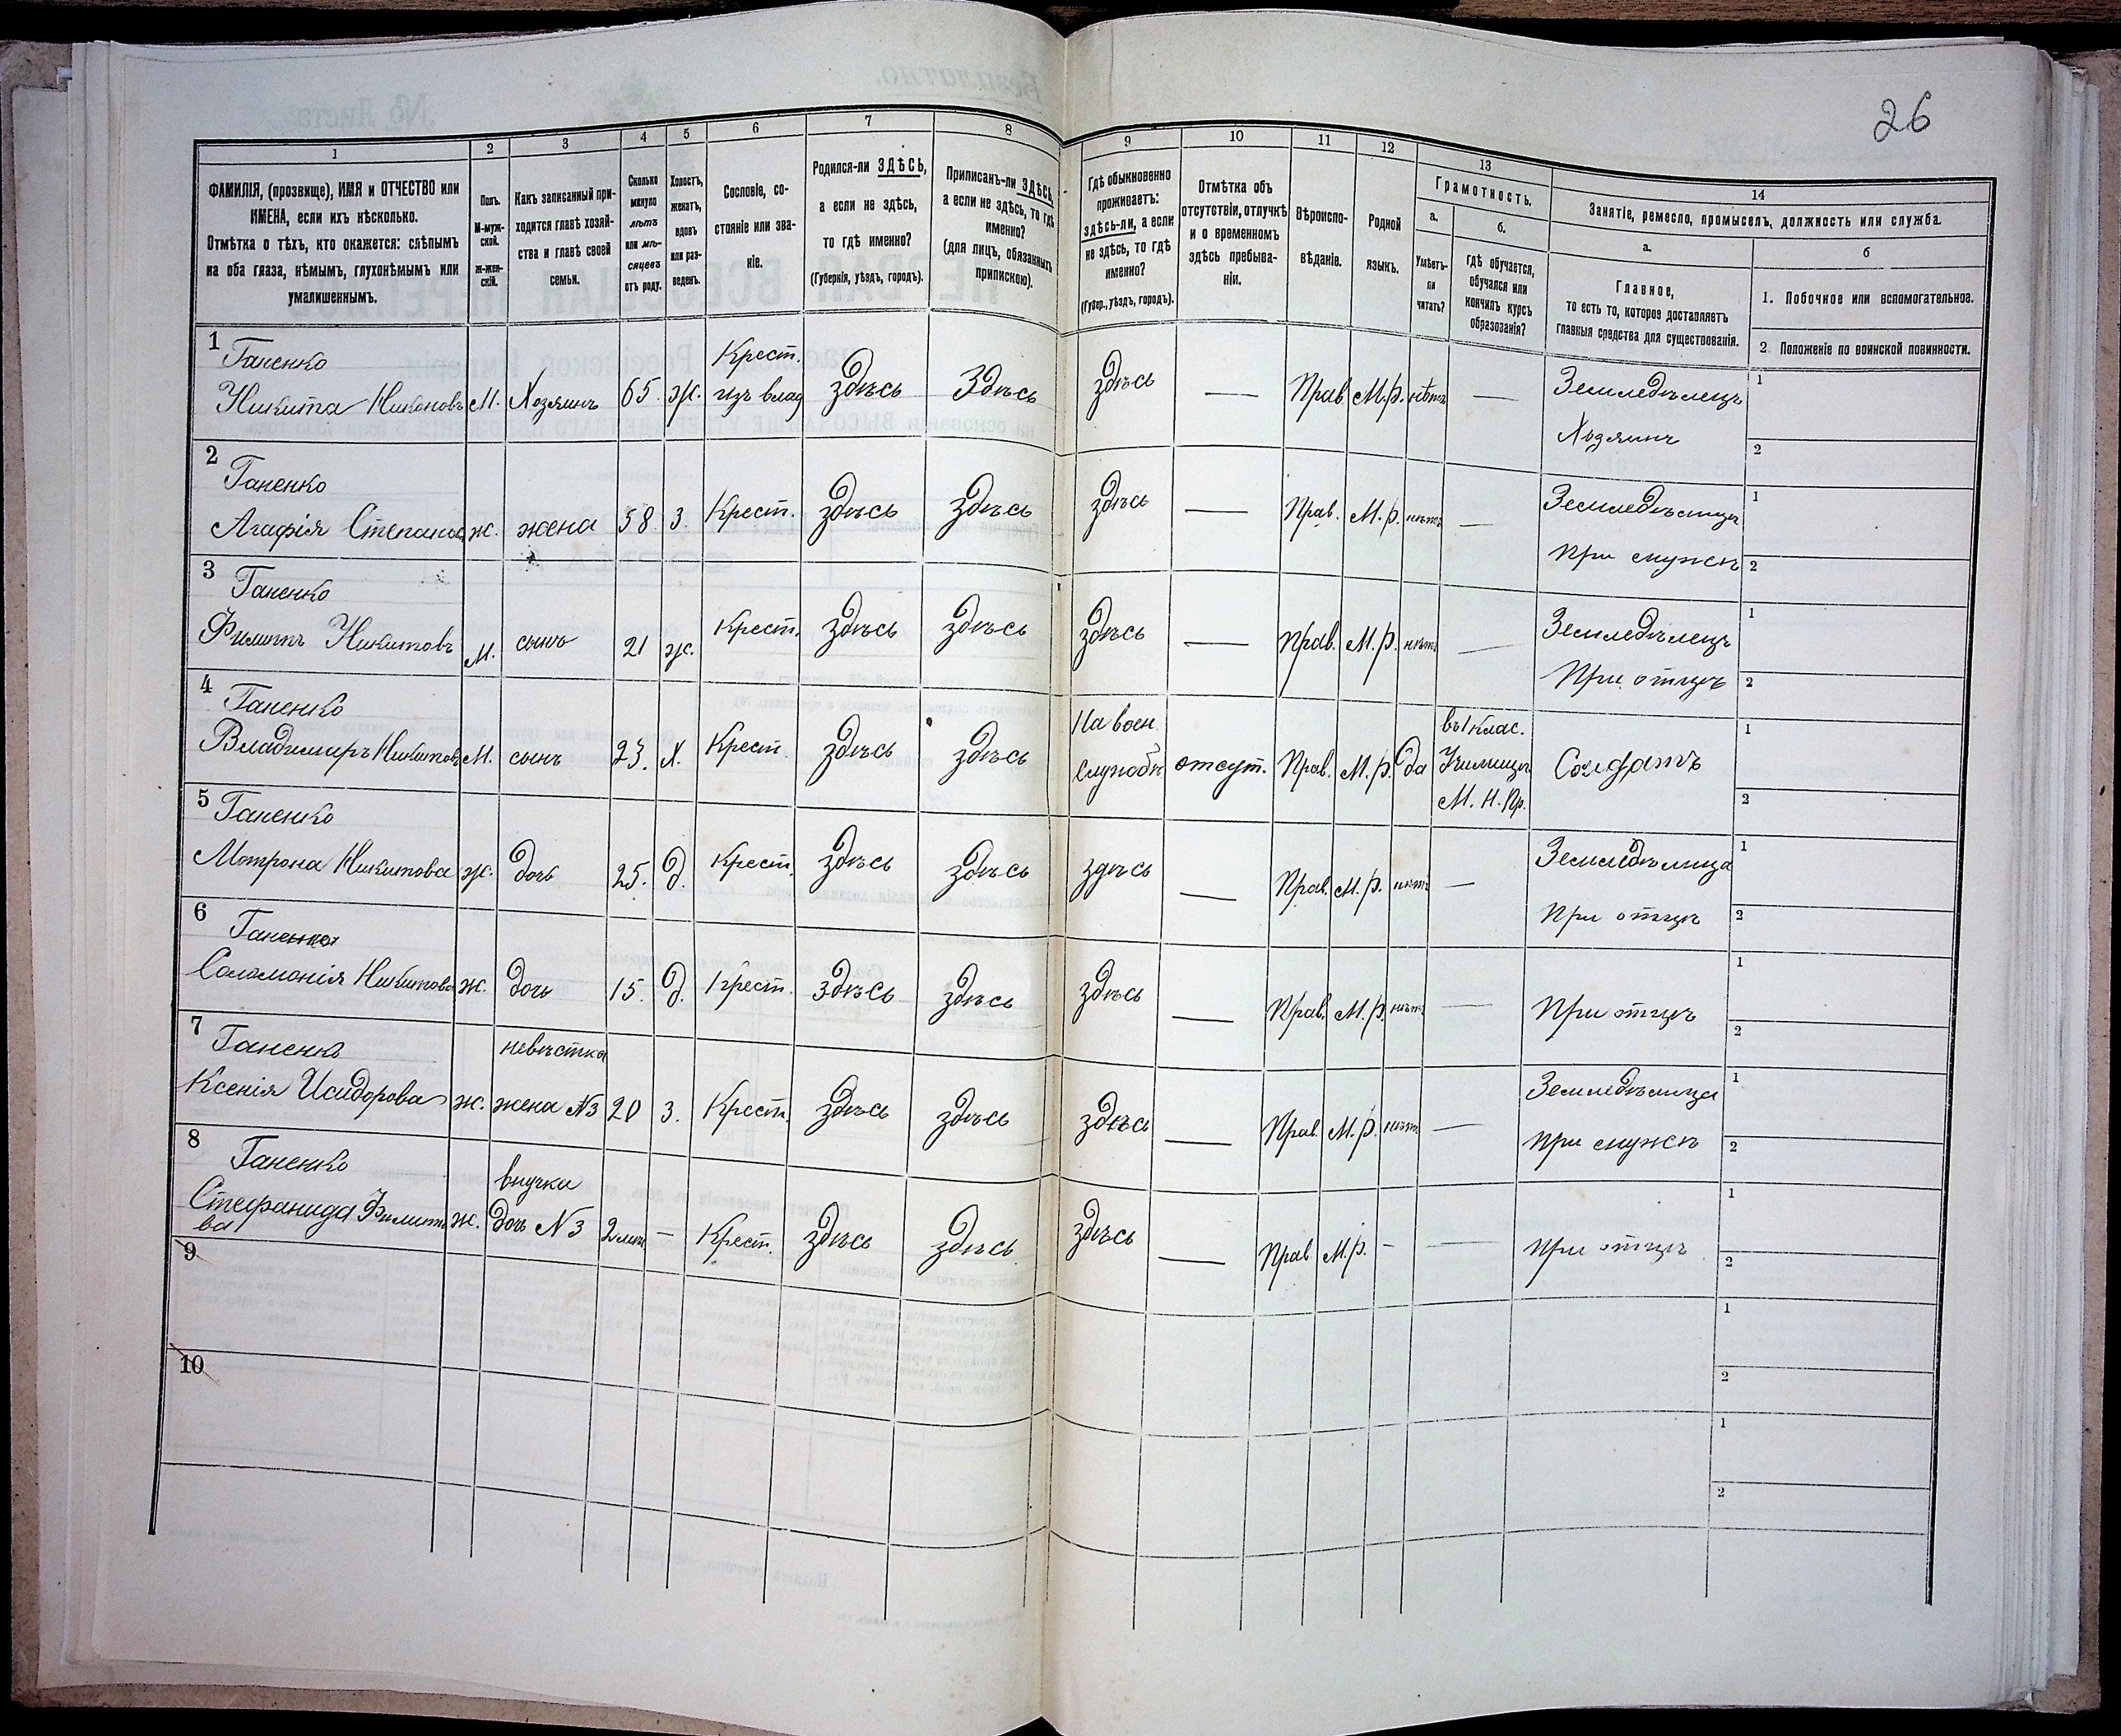 26
1
2
3
4
5
6
7
8
9
10
11
12
13
14
ФАМИЛІЯ, (прозвище), ИМЯ и ОТЧЕСТВО или
ИМЕНА, если ихъ нѣсколько.
Отмѣтка о тѣхъ, кто окажется: слѣпымъ
на оба глаза, нѣмымъ, глухонѣмымъ или
умалишеннымъ.
Полъ.
М-муж-
ской.
ж-жен-
скій.
Какъ записанный при-
ходится главѣ хозяй-
ства и главѣ своей
семьи.
Сколько
минуло
лѣтъ
или мѣ-
сяцевъ
отъ роду.
Холостъ,
женатъ,
вдовъ
или раз-
веденъ.
Сословіе, со-
стояніе или зва-
ніе.
Родился-ли ЗДѢСЬ,
а если не здѣсь,
то гдѣ именно?
(Губернія, уѣздъ, городъ).
Приписанъ-ли ЗДѢСЬ,
а если не здѣсь, то гдѣ
именно?
(для лицъ, обязанныхъ
припискою).
Гдѣ обыкновенно
проживаетъ:
здѣсь-ли, а если
не здѣсь, то гдѣ
именно?
(Губер., уѣздъ, городъ).
Отмѣтка объ
отсутствіи, отлучкѣ
и о временномъ
здѣсь пребыва-
ніи.
Вѣроиспо-
вѣданіе.
Родной
языкъ.
Грамотность.
а.
Умѣетъ-
ли
читать?
б.
гдѣ обучается,
обучался или
кончилъ курсъ
образованія?
Занятіе, ремесло, промыселъ, должность или служба.
а.
Главное,
то есть то, которое доставляетъ
главныя средства для существованія.
б
1. Побочное или вспомогательное.
2 Положеніе по воинской повинности.
1 Ганенко Крест.
Никита Никоновъ М. Хозяинъ 65. ж. изъ влад здѣсь Здѣсь здѣсь — Прав. М.р. нѣтъ — Земледѣлецъ 1
Хозяинъ 2
2 Ганенко
Агафія Степанова ж. жена 58 З. Крест. здѣсь здѣсь здѣсь — Прав. М.р. нѣтъ — Земледѣлица 1
При мужѣ 2
3 Ганенко
Филипъ Никитовъ М. сынъ 21 ж. Крест. здѣсь здѣсь здѣсь — Прав. М.р. нѣтъ — Земледѣлецъ 1
При отцѣ 2
4 Ганенко На воен. въ 1 клас.
Владимиръ Никитовъ М. сынъ 23. Х. Крест. здѣсь здѣсь службѣ отсут. Прав. М.р. да Училищѣ Солдатъ 1
М. Н. Пр. 2
5 Ганенко
Мотрона Никитова ж. дочь 25. д. Крест. здѣсь здѣсь здѣсь — Прав. М.р. нѣтъ — Земледѣлица 1
При отцѣ 2
6 Ганенко
Соломонія Никитова ж. дочь 15. д. Крест. здѣсь здѣсь здѣсь — Прав. М.р. нѣтъ — При отцѣ 1
2
7 Ганенко невѣстка
Ксенія Исидорова ж. жена №3 20 З. Крест. здѣсь здѣсь здѣсь — Прав. М.р. нѣтъ — Земледѣлица 1
При мужѣ 2
8 Ганенко внучка
Стефанида Филипо ж. дочь №3 — Крест. здѣсь здѣсь здѣсь — Прав. М.р. — — При отцѣ 1
ва 2
9
1
2
10
1
2